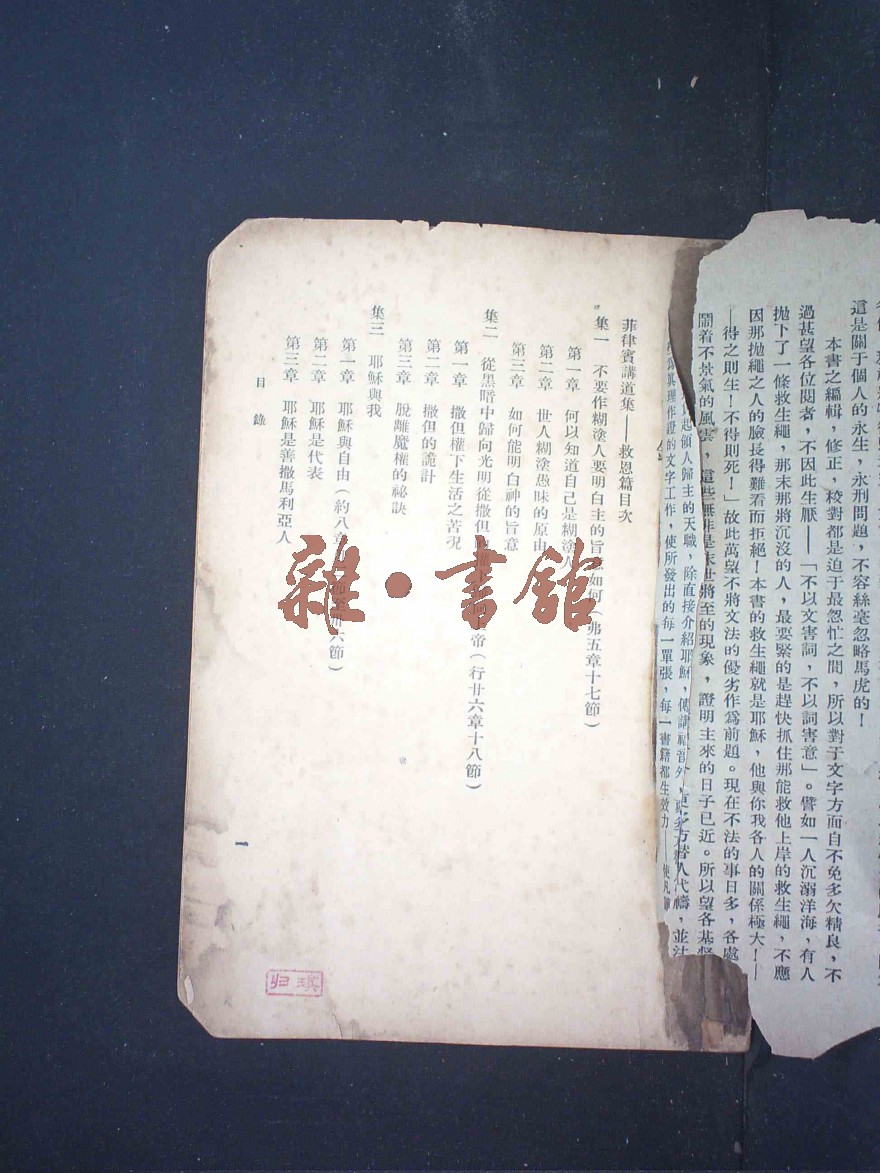 這是關于個人的永生，永刑問題，不容絲毫忽略馬虎的！
本書之編輯，修正，校對都是迫于最忽忙之間，所以對于文字方面自不免多欠精良，不
過甚望各位閱者，不因此生厭——「不以文害詞，不以詞害意」。譬如一人沉溺洋海，有人
拋下了一條救生繩，那末那將沉沒的人，最要緊的是趕快抓住那能救他上岸的救生繩，不應
因那拋繩之人的臉長得難看而拒絕！本書的救生繩就是耶穌，他與你我各人的關係極大！—
—得之則生！不得則死！」故此萬望不將文法的優劣作爲前題。現在不法的事日多，各處
鬧着不景氣的風雲，這些無非是末世將至的現象，證明主來的日子已近。所以望各基督
起領人歸主的天職，除直接介紹耶穌，傳講福音外，更多方替人代禱，並注
爲眞理作證的文字工作，使所發出的每一單張，每一書籍都生效力——使凡
菲律賓講道集——救恩篇目次
集一　不要作糊塗人要明白主的旨意如何（弗五章十七節）
第一章　何以知道自己是糊塗人
第二章　世人糊塗愚昧的原由
第三章　如何能明白神的旨意
集二　從黑暗中歸向光明從撒但權下歸向上帝（行廿六章十八節）
第一章　撒但權下生活之苦況
第二章　撒但的詭計
第三章　脫離魔權的祕訣
集三　耶穌與我
第一章　耶穌與自由（約八章節至卅六節）
第二章　耶穌是代表
第三章　耶穌是善撒馬利亞人
目錄
一
雜·書館